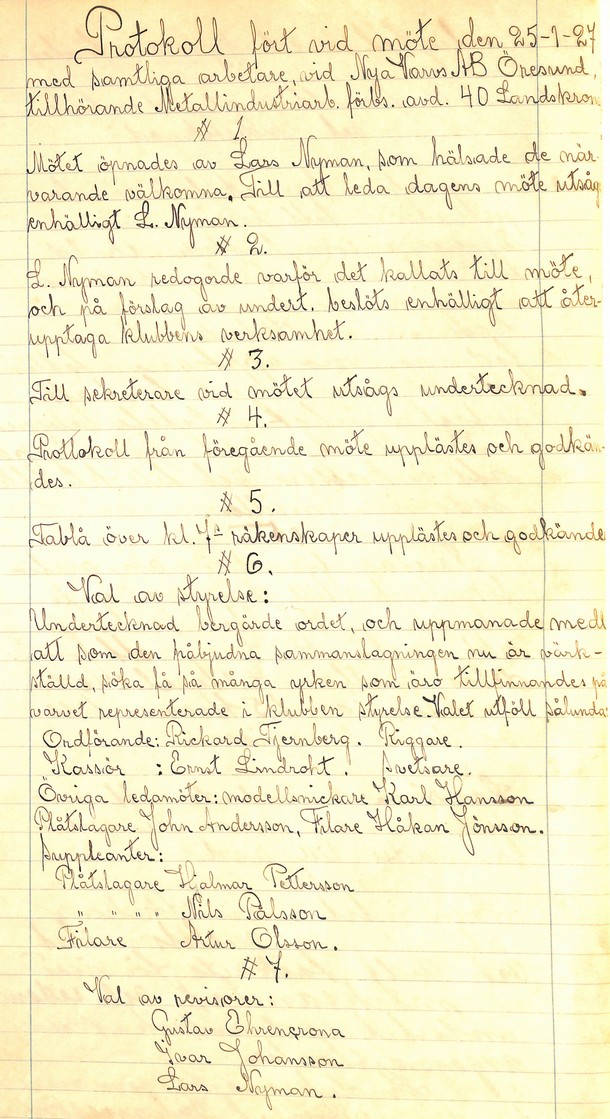 Protokoll fört vid möte den 25-1-27
med samtliga arbetare, vid Nya Varvs AB Öresund,
tillhörande Metallindustriarb. förbs. avd. 40 Landskron
# 1.
Mötet öpnades av Lars Nyman, som hälsade de när-
varande välkomna. Till att leda dagens möte utsåg
enhälligt L. Nyman.
# 2.
L. Nyman redogorde varför det kallats till möte,
och på förslag av undert. beslöts enhälligt att åter-
upptaga klubbens verksamhet.
# 3.
Till sekreterare vid mötet utsågs undertecknad.
# 4.
Prottokoll från föregående möte upplästes och godkän-
des.
# 5.
Tablå över kl. 7- räkenskaper upplästes och godkände
# 6.
Val av styrelse:
Undertecknad bergärde ordet, och uppmanade medl
att som den påbjudna sammanslagningen nu är värk-
ställd, söka få så många yrken som äro tillfinnandes på
varvet representerade i klubben styrelse. Valet utföll sålunda:
Ordförande: Rickard Tjernberg. Riggare.
Kassör : Ernst Lindroht. Svetsare.
Övriga ledamöter: modellsnickare Karl Hansson
Plåtslagare John Andersson, Filare Håkan Jönsson.
Suppleanter:
Plåtslagare Hjalmar Pettersson
" " " " Nils Pålsson
Filare Artur Olsson.
# 7.
Val av revisorer:
Gustav Ehrencrona
Ivar Johansson
Lars Nyman.